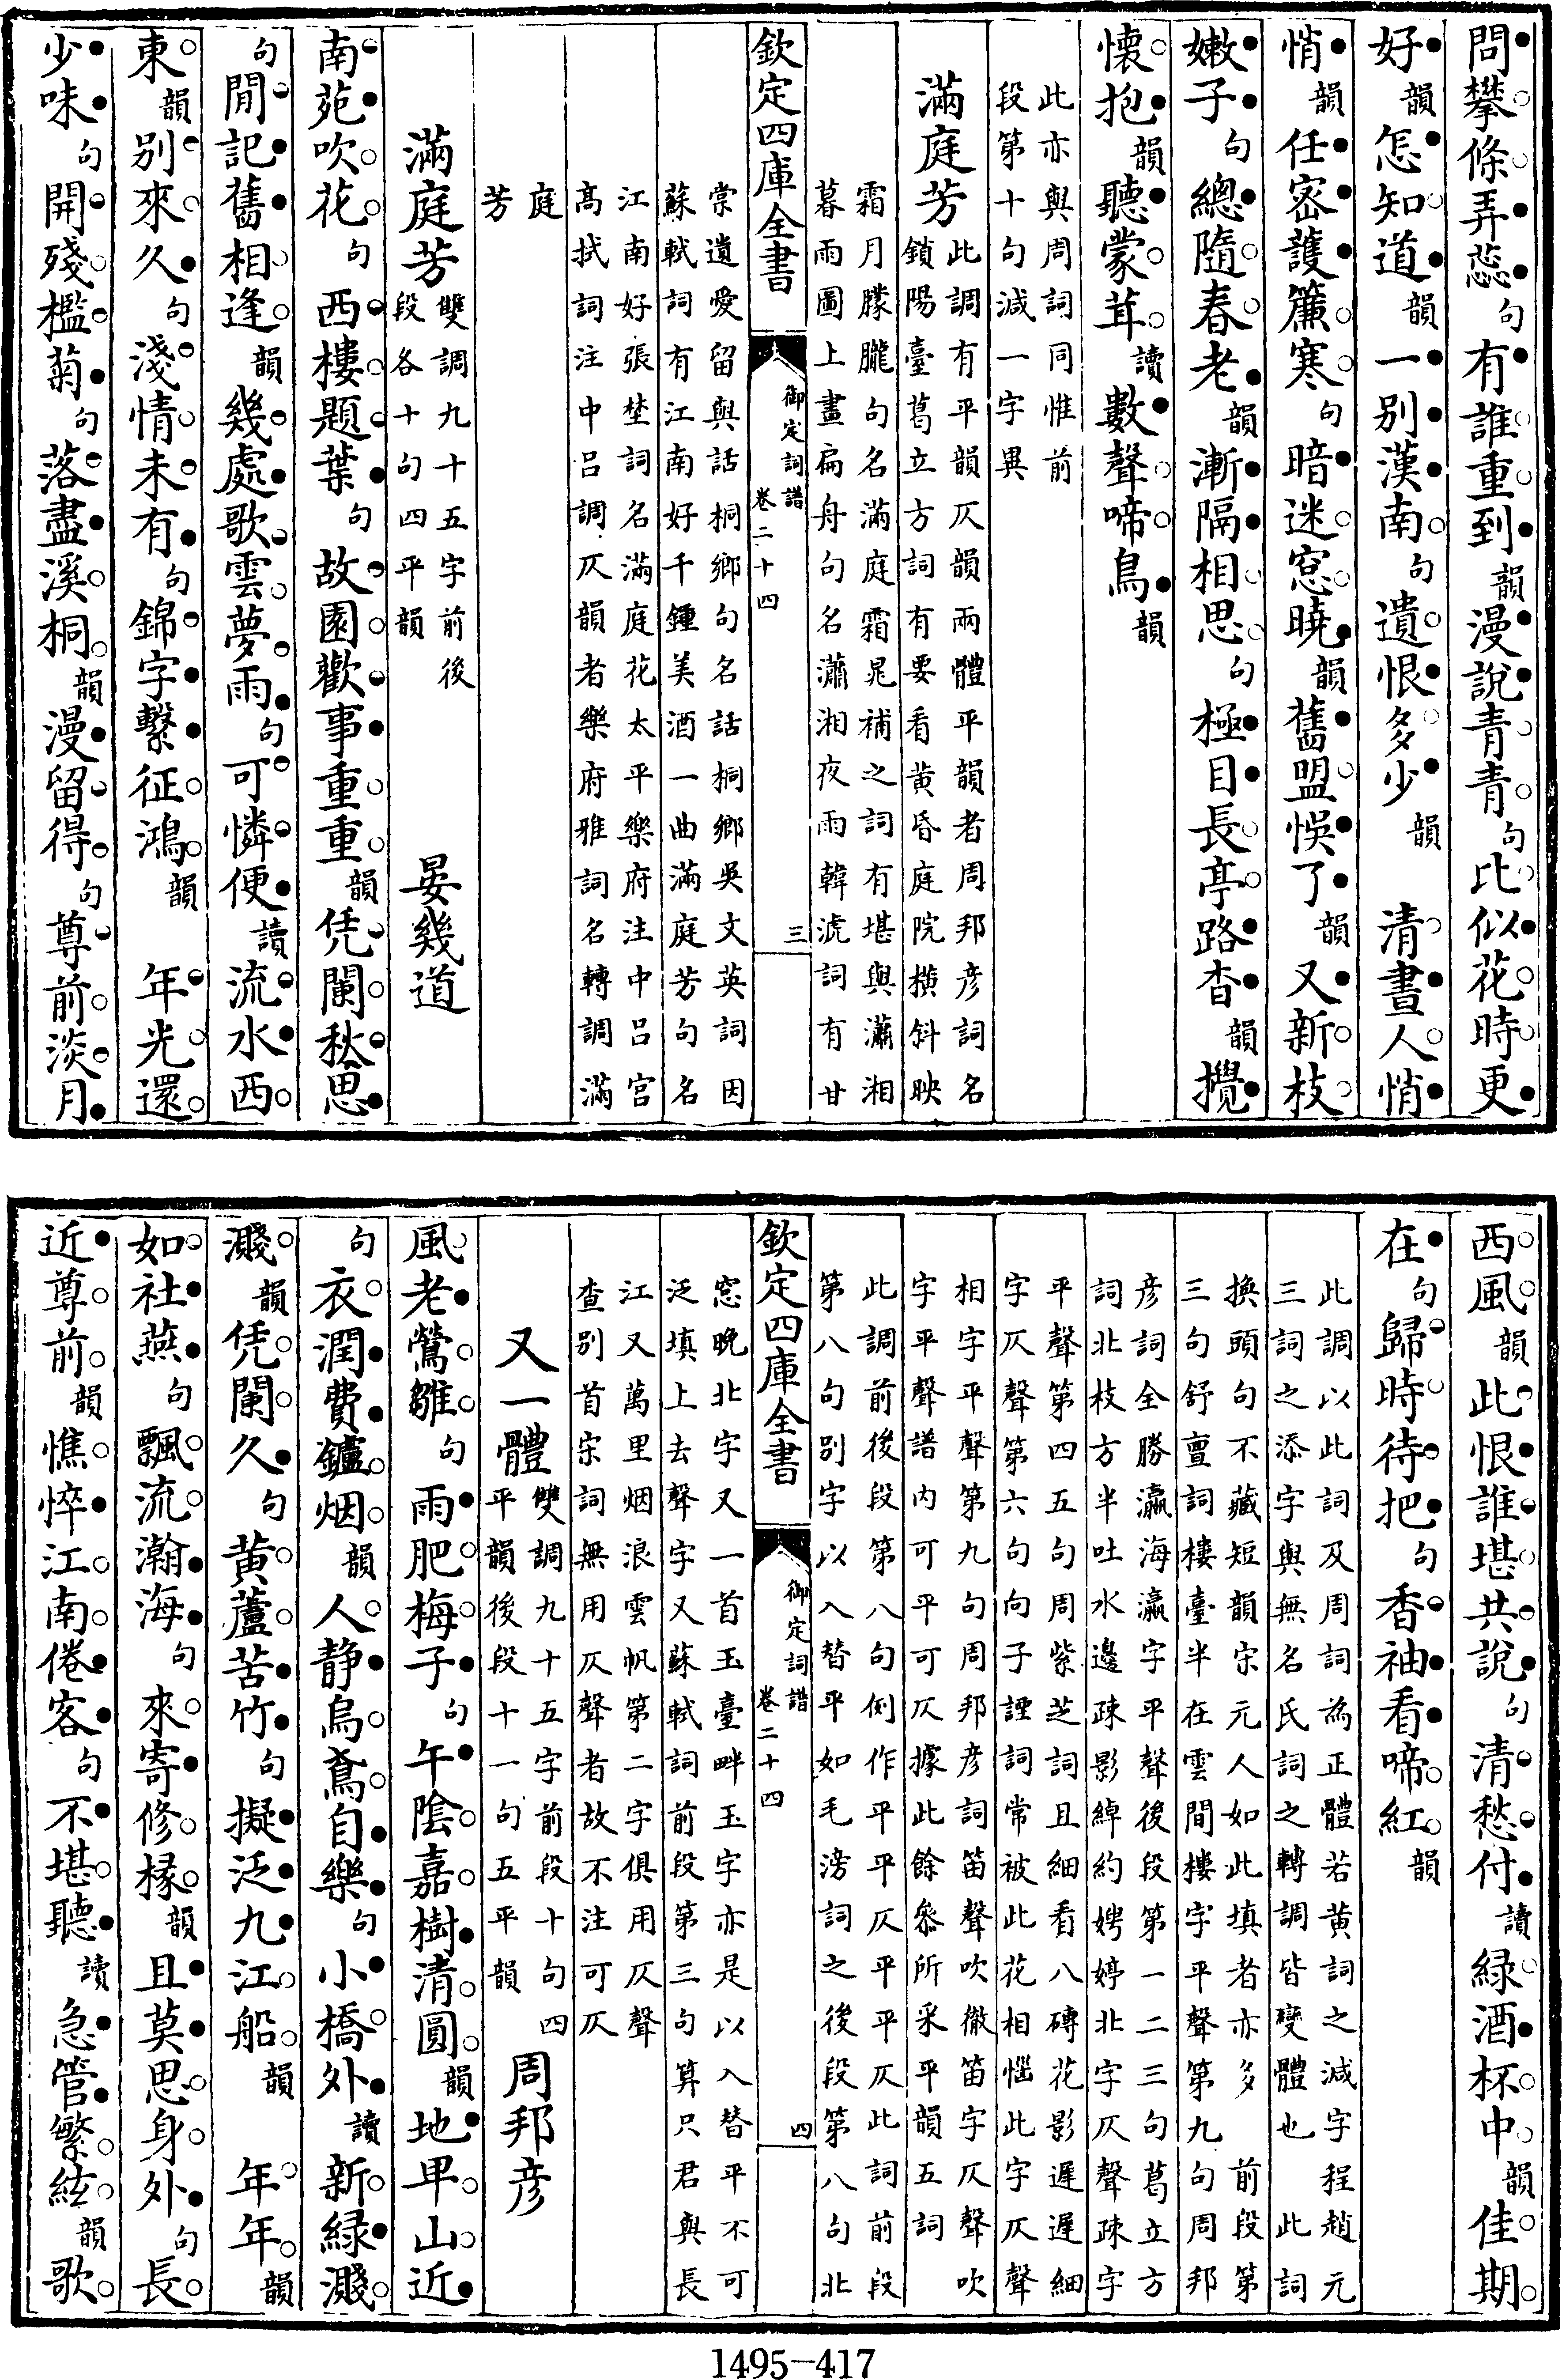 問攀條弄蕊句有誰重到韻漫說青青句比似花時更
好韻怎知道韻一别漢南句遺恨多少韻 清晝人悄
悄韻任宻護簾寒句暗迷窓曉韻舊盟悞了韻又新枝
嫩子句總隨春老韻漸隔相思句極目長亭路杳韻攪
懷抱韻聽蒙茸讀數聲啼鳥韻
此亦與周詞同惟前
段第十句減一字異
滿庭芳此調有平韻仄韻兩體平韻者周邦彦詞名
鎖陽臺葛立方詞有要看黄昏庭院横斜映
霜月朦朧句名滿庭霜晁補之詞有堪與瀟湘
暮雨圖上畫扁舟句名瀟湘夜雨韓淲詞有甘
棠遺愛留與話桐鄉句名話桐鄉吳文英詞因
蘇軾詞有江南好千鍾美酒一曲滿庭芳句名
江南好張埜詞名滿庭花太平樂府注中吕宫
髙拭詞注中吕調仄韻者樂府雅詞名轉調滿
庭
芳
滿庭芳雙調九十五字前後
段各十句四平韻 晏幾道
南苑吹花句西樓題葉句故園歡事重重韻凭闌秋思
句閒記舊相逢韻幾處歌雲夢雨句可憐便讀流水西
東韻别來久句淺情未有句錦字繫征鴻韻 年光還
少味句開殘檻菊句落盡溪桐韻漫留得句尊前淡月
欽定四庫全書 御定詞譜 卷二十四 三
西風韻此恨誰堪共說句清愁付讀緑酒杯中韻佳期
在句歸時待把句香袖看啼紅韻
此調以此詞及周詞為正體若黄詞之減字程趙元
三詞之添字與無名氏詞之轉調皆變體也 此詞
換頭句不藏短韻宋元人如此填者亦多 前段第
三句舒亶詞樓臺半在雲間樓字平聲第九句周邦
彦詞全勝瀛海瀛字平聲後段第一二三句葛立方
詞北枝方半吐水邊疎影綽約娉婷北字仄聲疎字
平聲第四五句周紫芝詞且細看八磚花影遲遲細
字仄聲第六句向子諲詞常被此花相惱此字仄聲
相字平聲第九句周邦彦詞笛聲吹徹笛字仄聲吹
字平聲譜内可平可仄據此餘叅所采平韻五詞
此調前後段第八句例作平平仄平平仄此詞前段
第八句别字以入替平如毛滂詞之後段第八句北
窓晚北字又一首玉臺畔玉字亦是以入替平不可
泛填上去聲字又蘇軾詞前段第三句算只君與長
江又萬里烟浪雲帆第二字俱用仄聲
查别首宋詞無用仄聲者故不注可仄
又一體雙調九十五字前段十句四
平韻後段十一句五平韻 周邦彦
風老鶯雛句雨肥梅子句午陰嘉樹清圓韻地卑山近
句衣潤費鑪烟韻人静烏鳶自樂句小橋外讀新緑濺
濺韻凭闌久句黄蘆苦竹句擬泛九江船韻 年年韻
如社燕句飄流瀚海句來寄修椽韻且莫思身外句長
近尊前韻憔悴江南倦客句不堪聽讀急管繁絃韻歌
欽定四庫全書 御定詞譜 卷二十四 四
1495—417